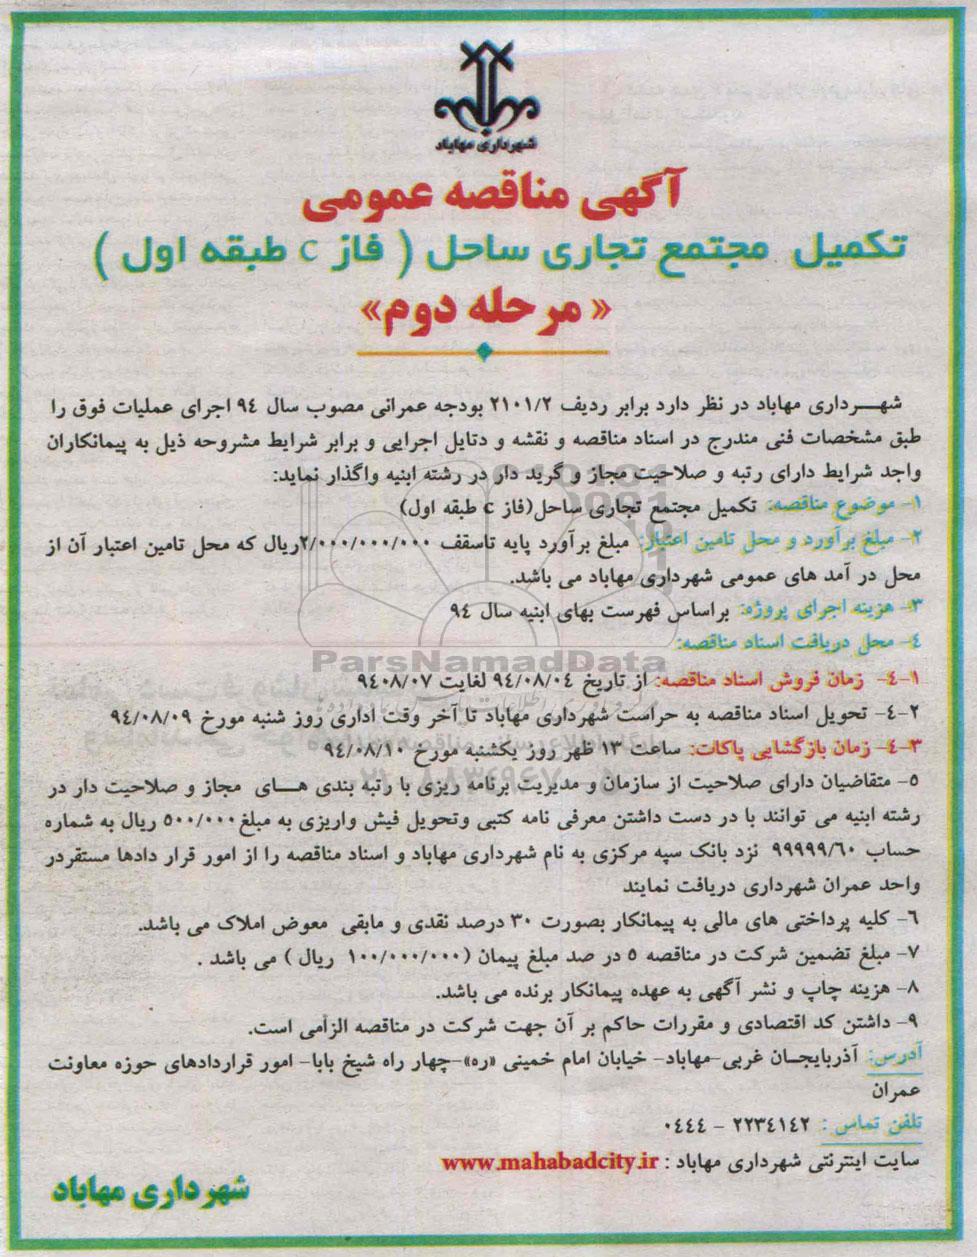 شهرداری مهاباد
آگهی مناقصه عمومی
تکمیل مجتمع تجاری ساحل ( فاز C طبقه اول )
« مرحله دوم»
شهـــرداری مهاباد در نظر دارد برابر ردیف ۲۱۰۱/۲ بودجه عمرانی مصوب سال ۹٤ اجرای عملیات فوق را
طبق مشخصات فنی مندرج در اسناد مناقصه و نقشه و دتایل اجرایی و برابر شرایط مشروحه ذیل به پیمانکاران
واجد شرایط دارای رتبه و صلاحیت مجاز و گرید دار در رشته ابنیه واگذار نماید:
۱- موضوع مناقصه: تکمیل مجتمع تجاری ساحل(فاز C طبقه اول)
۲- مبلغ برآورد و محل تامین اعتبار: مبلغ برآورد پایه تاسقف ۲/۰۰۰/۰۰۰/۰۰۰ریال که محل تامین اعتبار آن از
محل در آمد های عمومی شهرداری مهاباد می باشد.
۳- هزینه اجرای پروژه: براساس فهرست بهای ابنیه سال ۹٤
٤- محل دریافت اسناد مناقصه:
٤-۱- زمان فروش اسناد مناقصه: از تاریخ ۹٤/۰۸/۰٤ لغایت ۹٤۰۸/۰۷
٤-۲- تحویل اسناد مناقصه به حراست شهرداری مهاباد تا آخر وقت اداری روز شنبه مورخ ۹٤/۰۸/۰۹
٤-۳- زمان بازگشایی پاکات: ساعت ۱۳ ظهر روز یکشنبه مورخ ۹٤/۰۸/۱۰
۵- متقاضیان دارای صلاحیت از سازمان و مدیریت برنامه ریزی با رتبه بندی هـــای مجاز و صلاحیت دار در
رشته ابنیه می توانند با در دست داشتن معرفی نامه کتبی وتحویل فیش واریزی به مبلغ۵۰۰/۰۰۰ ریال به شماره
حساب ۹۹۹۹۹/٦۰ نزد بانک سپه مرکزی به نام شهرداری مهاباد و اسناد مناقصه را از امور قرار دادها مستقردر
واحد عمران شهرداری دریافت نمایند
٦- کلیه پرداختی های مالی به پیمانکار بصورت ۳۰ درصد نقدی و مابقی معوض املاک می باشد.
۷- مبلغ تضمین شرکت در مناقصه ۵ در صد مبلغ پیمان (۱۰۰/۰۰۰/۰۰۰ ریال ) می باشد .
۸- هزینه چاپ و نشر آگهی به عهده پیمانکار برنده می باشد.
۹- داشتن کد اقتصادی و مقررات حاکم بر آن جهت شرکت در مناقصه الزامی است.
آدرس: آذربایجـان غربی-مهاباد- خیابان امام خمینی «ره»-چهار راه شیخ بابا- امور قراردادهای حوزه معاونت
عمران
تلفن تماس : ۲۲۳٤۱٤۲ - ۰٤٤٤
سایت اینترنتی شهرداری مهاباد : www.mahabadcity.ir
شهرداری مهاباد
ParsNamadData